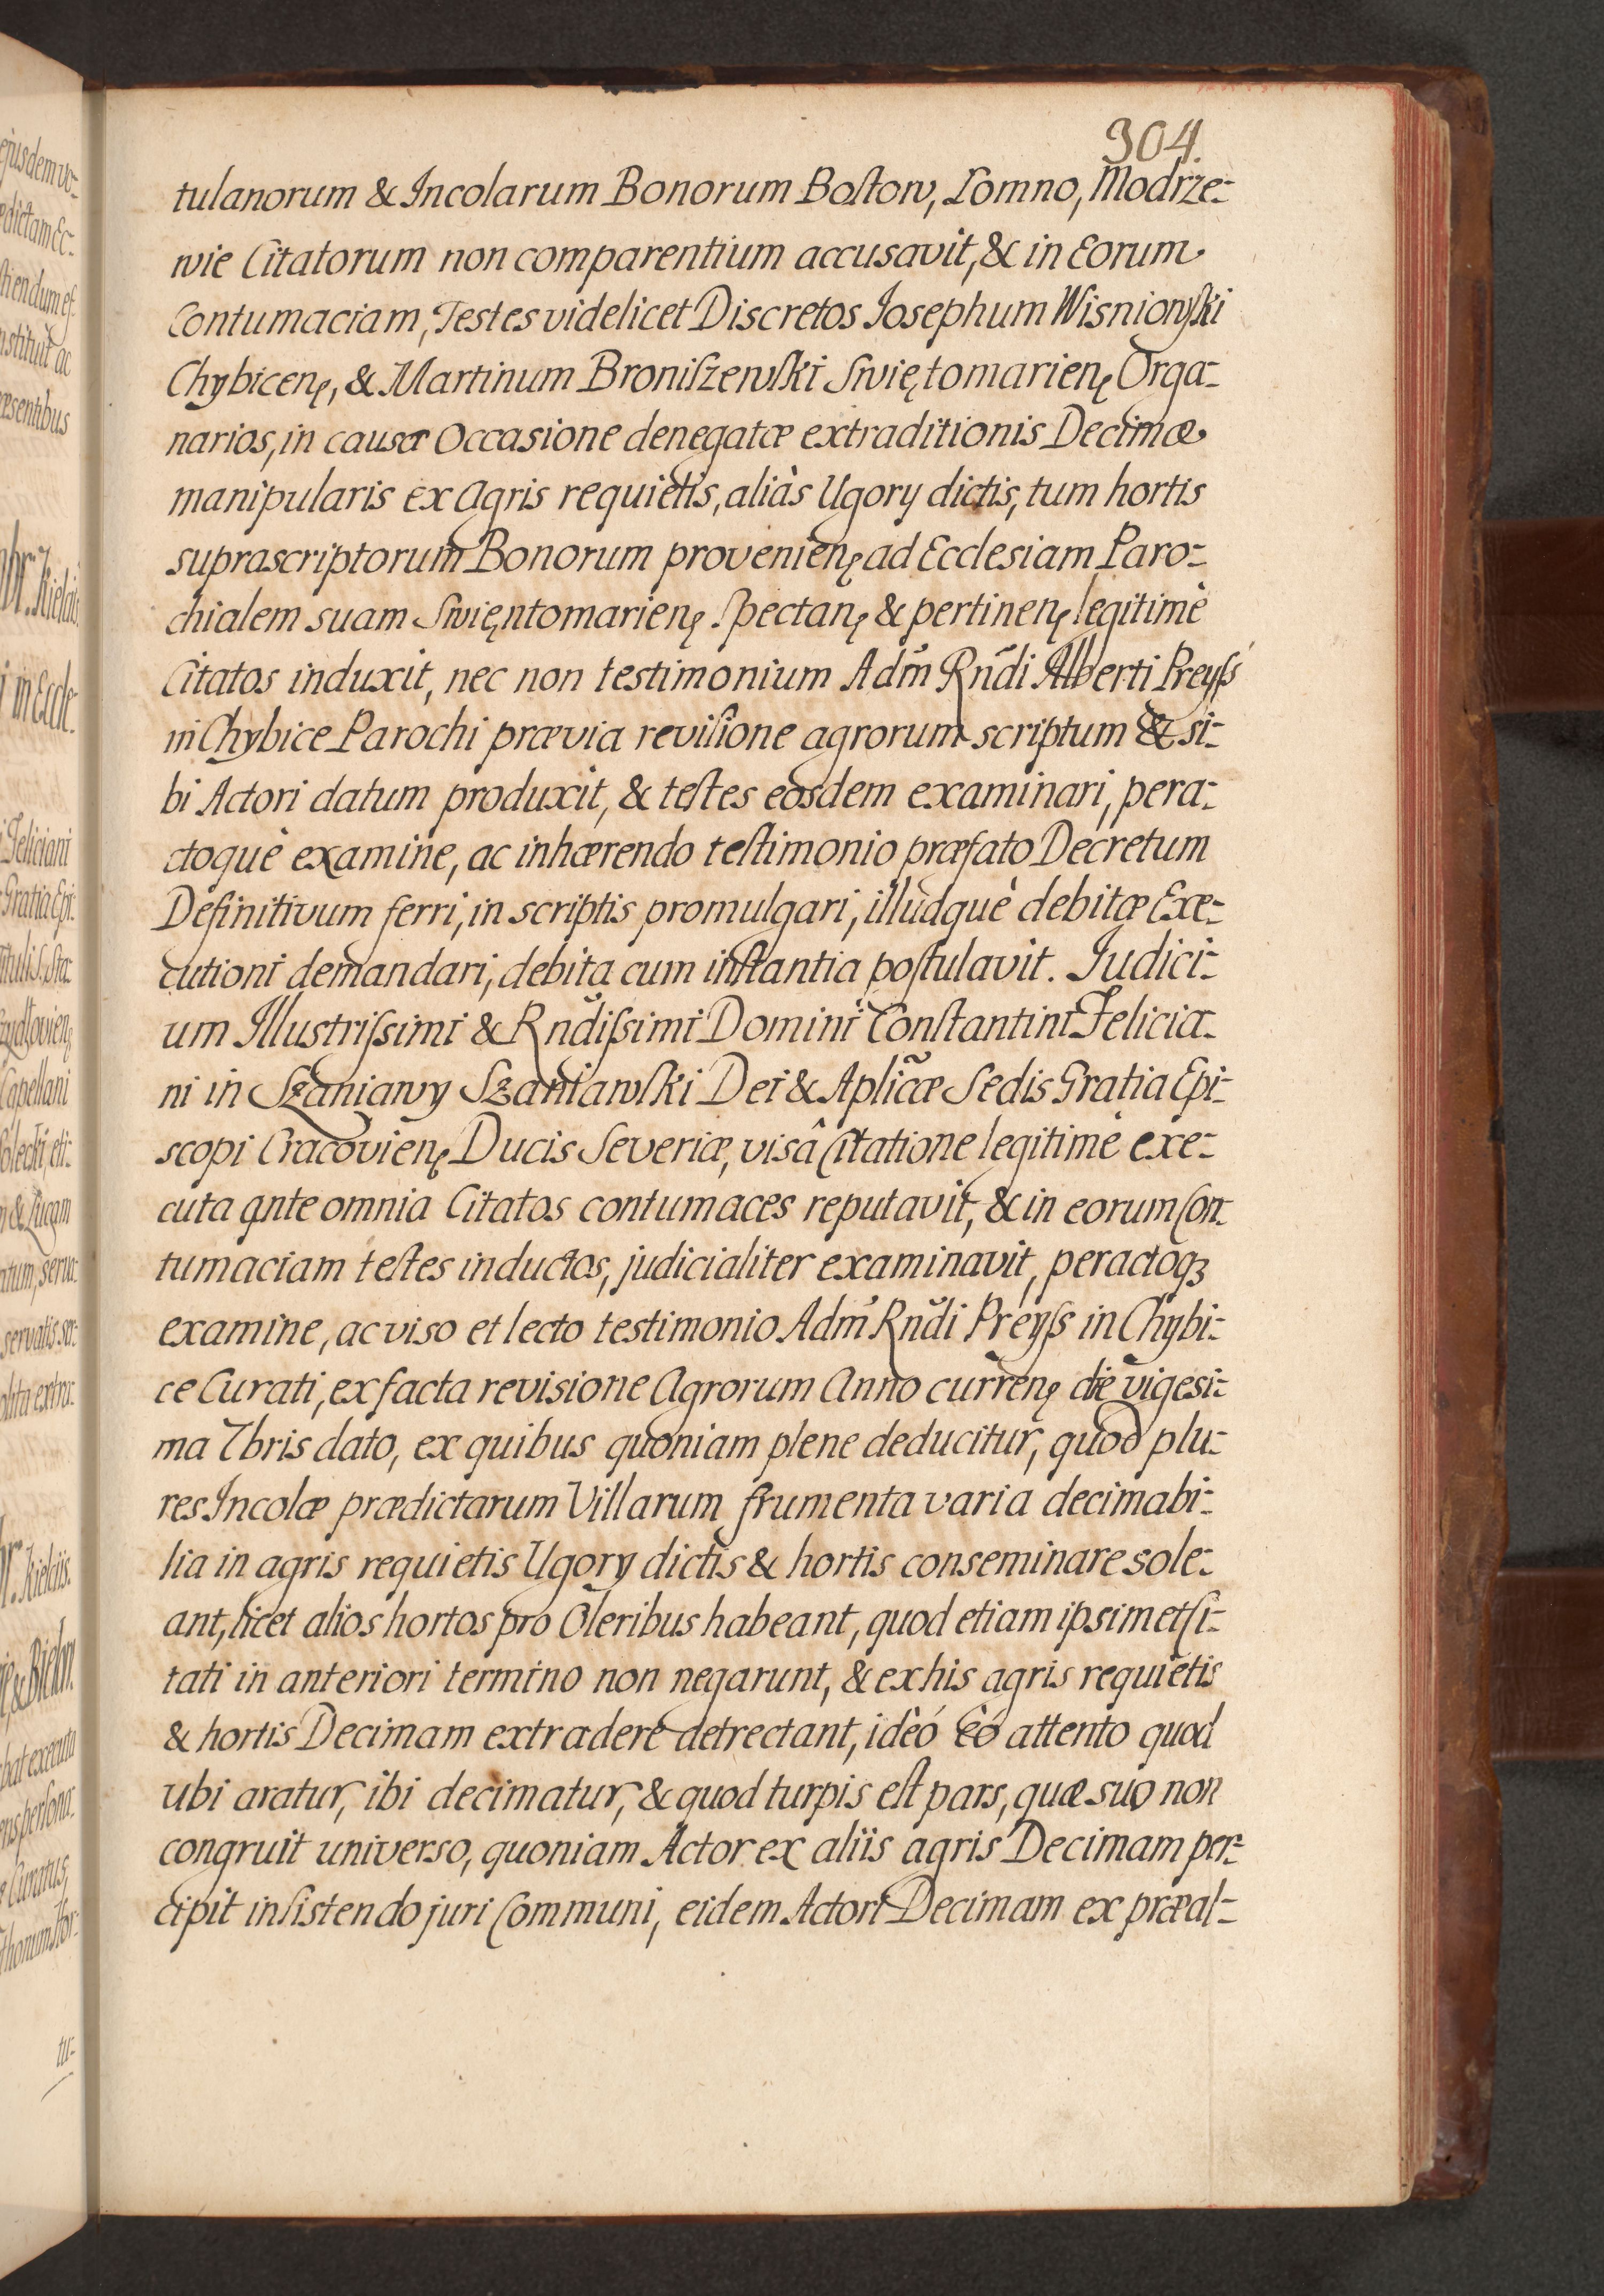 304.
tulanorum & Incolarum Bonorum Bostow, Łomno, Modrze-
wie Citatorum non comparentium accusavit, & in Eorum
Contumaciam, Testes videlicet Discretos Josephum Wisniowski
Chybicenę, & Martinum Broniszewski Swiętomarienę Orga-
narios, in causa Occasione denegatæ extraditionis Decimæ
manipularis ex Agris requietis, aliàs Ugory dictis, tum hortis
suprascriptorum Bonorum provenienę ad Ecclesiam Paro-
chialem suam Swięntomarienę Spectanę & pertinenę legitimè
Citatos induxit, nec non testimonium Adm̃ Rñdi Alberti Preyss
in Chybice Parochi prævia revisione agrorum scriptum & si-
bi Actori datum produxit, & testes eosdem examinari, pera-
ctoquè examine, ac inhærendo testimonio præfato Decretum
Definitivum ferri, in scriptis promulgari, illudquè debitæ Exe-
cutioni demandari, debita cum instantia postulavit. Judici-
um Illustrissimi & Rñdissimi Domini Constantini Felicia-
ni in Szaniawy Szaniawski Dei & Aplicæ Sedis Gratia Epi-
scopi Cracovienę Ducis Severiæ, visâ Citatione legitimè exe-
cuta ante omnia Citatos contumaces reputavit, & in eorum Con-
tumaciam testes inductos, judicialiter examinavit, peractoqꝫ
examine, ac viso et lecto testimonio Adm̃ Rñdi Preyss in Chybi-
ce Curati, ex facta revisione Agrorum Anno currenę die vigesi-
ma 7bris dato, ex quibus quoniam plene deducitur, quod plu-
res Incolæ prædictarum Villarum frumenta varia decimabi-
lia in agris requietis Ugory dictis & hortis conseminare sole-
ant, licet alios hortos pro Oleribus habeant, quod etiam ipsimet Ci-
tati in anteriori termino non negarunt, & ex his agris requietis
& hortis Decimam extradere detrectant, ideó eó attento quod
ubi aratur, ibi decimatur, & quod turpis est pars, quæ suo non
congruit universo, quoniam Actor ex aliis agris Decimam per-
cipit insistendo juri Communi, eidem Actori Decimam ex præal-